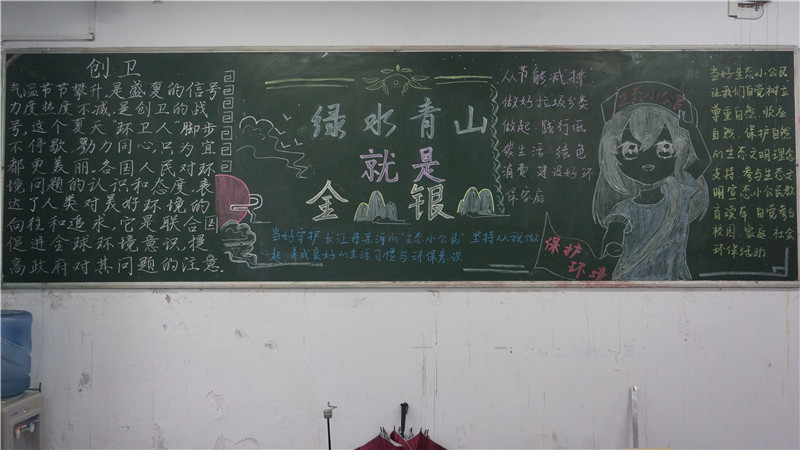 创卫
气温节节攀升,是盛夏的信号
力度热度不减,是创卫的战
号,这个夏天"环卫人"脚步
不停歇,勠力同心,只为宜
都更美丽。各国人民对环
境问题的认识和态度,表
达了人类对美好环境的
向往和追求,它是联合国
促进全球环境意识、提
高政府对其问题的注意.
绿水青山
就是
金 银
当好守护长江母亲河的"生态小公民" 坚持从我做
起 养成良好的生活习惯与环保意识
从节能减排
做好垃圾分类
做起,践行低
碳生活 绿色
消费 建设好环
保家庭
生态小公民
保护
环境
当好生态小公民
让我们自觉树立
尊重自然、顺应
自然、保护自然
的生态文明理念
支持、参与生态文
明宣 态小公民教
育读本,自觉参与
校园 家庭 社会
环保活动